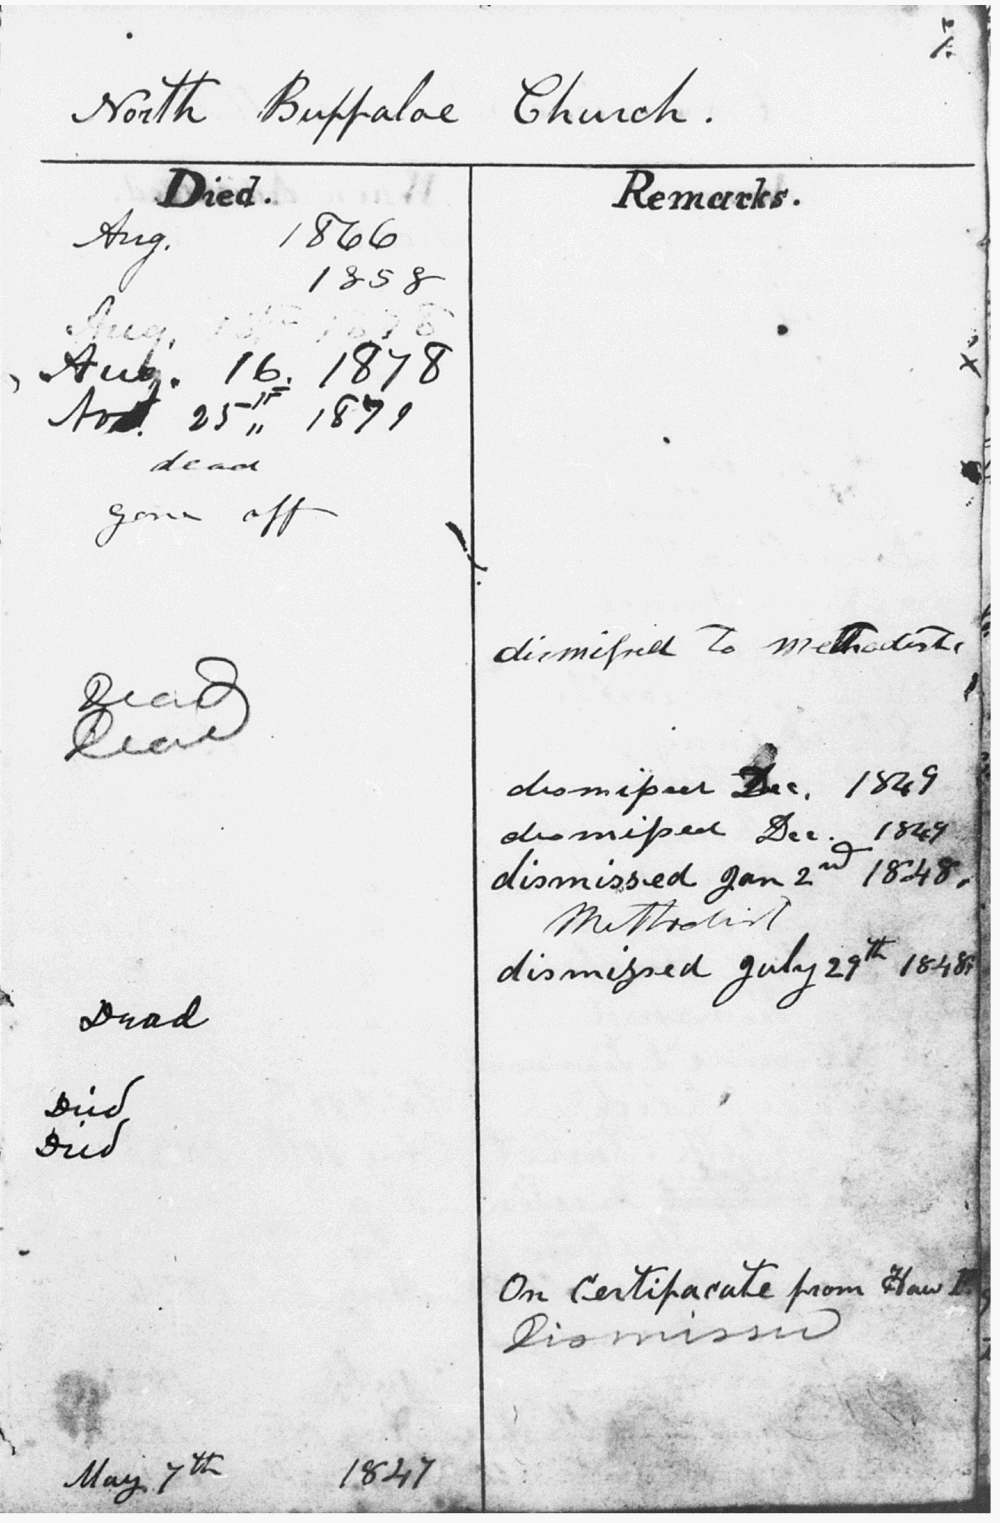 North Buffaloe Church.
Died. Remarks.
Aug. 1866
1858
Aug. 1878
Aug. 16. 1878
Nov. 25th 1879
dead
gone off
dismissed to Methodist
Dead
Dead
dismissed Dec. 1849
dismissed Dec. 1849
dismissed Jan 2nd 1848.
Methodist
dismissed July 29th 1848
Dead
Died
Died
On Certifacate from Haw
Dismissed
May 7th 1847